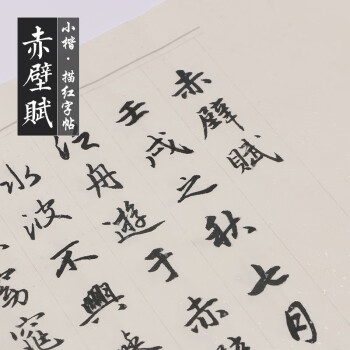 赤壁賦
小楷·描红字帖
赤壁賦
壬戌之秋七月
舟遊于赤
水波不興
窕